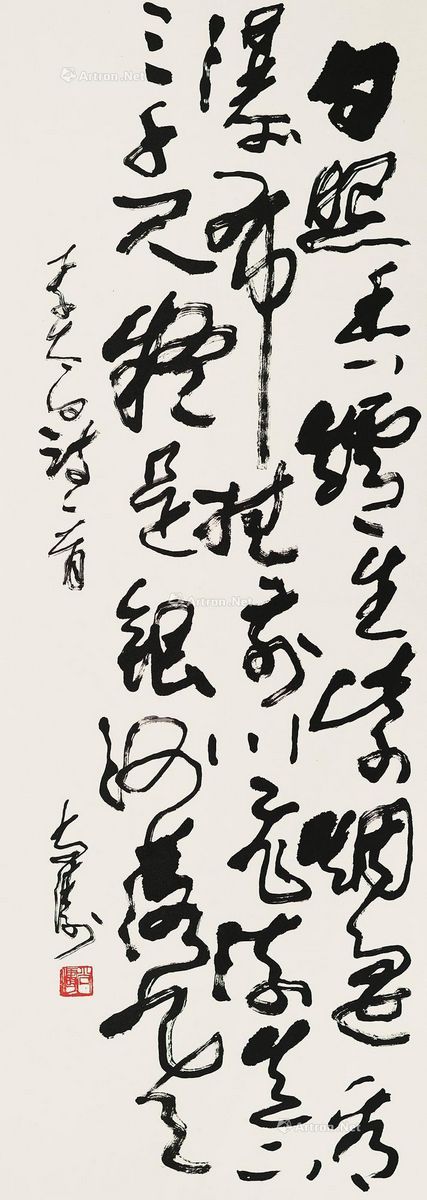 日照香爐生紫烟遥看
瀑布挂前川飛流直下
三千尺疑是銀河落九天
李太白詩一首
Artron.Net
Artron.Net
Artron.Net
Artron.Net